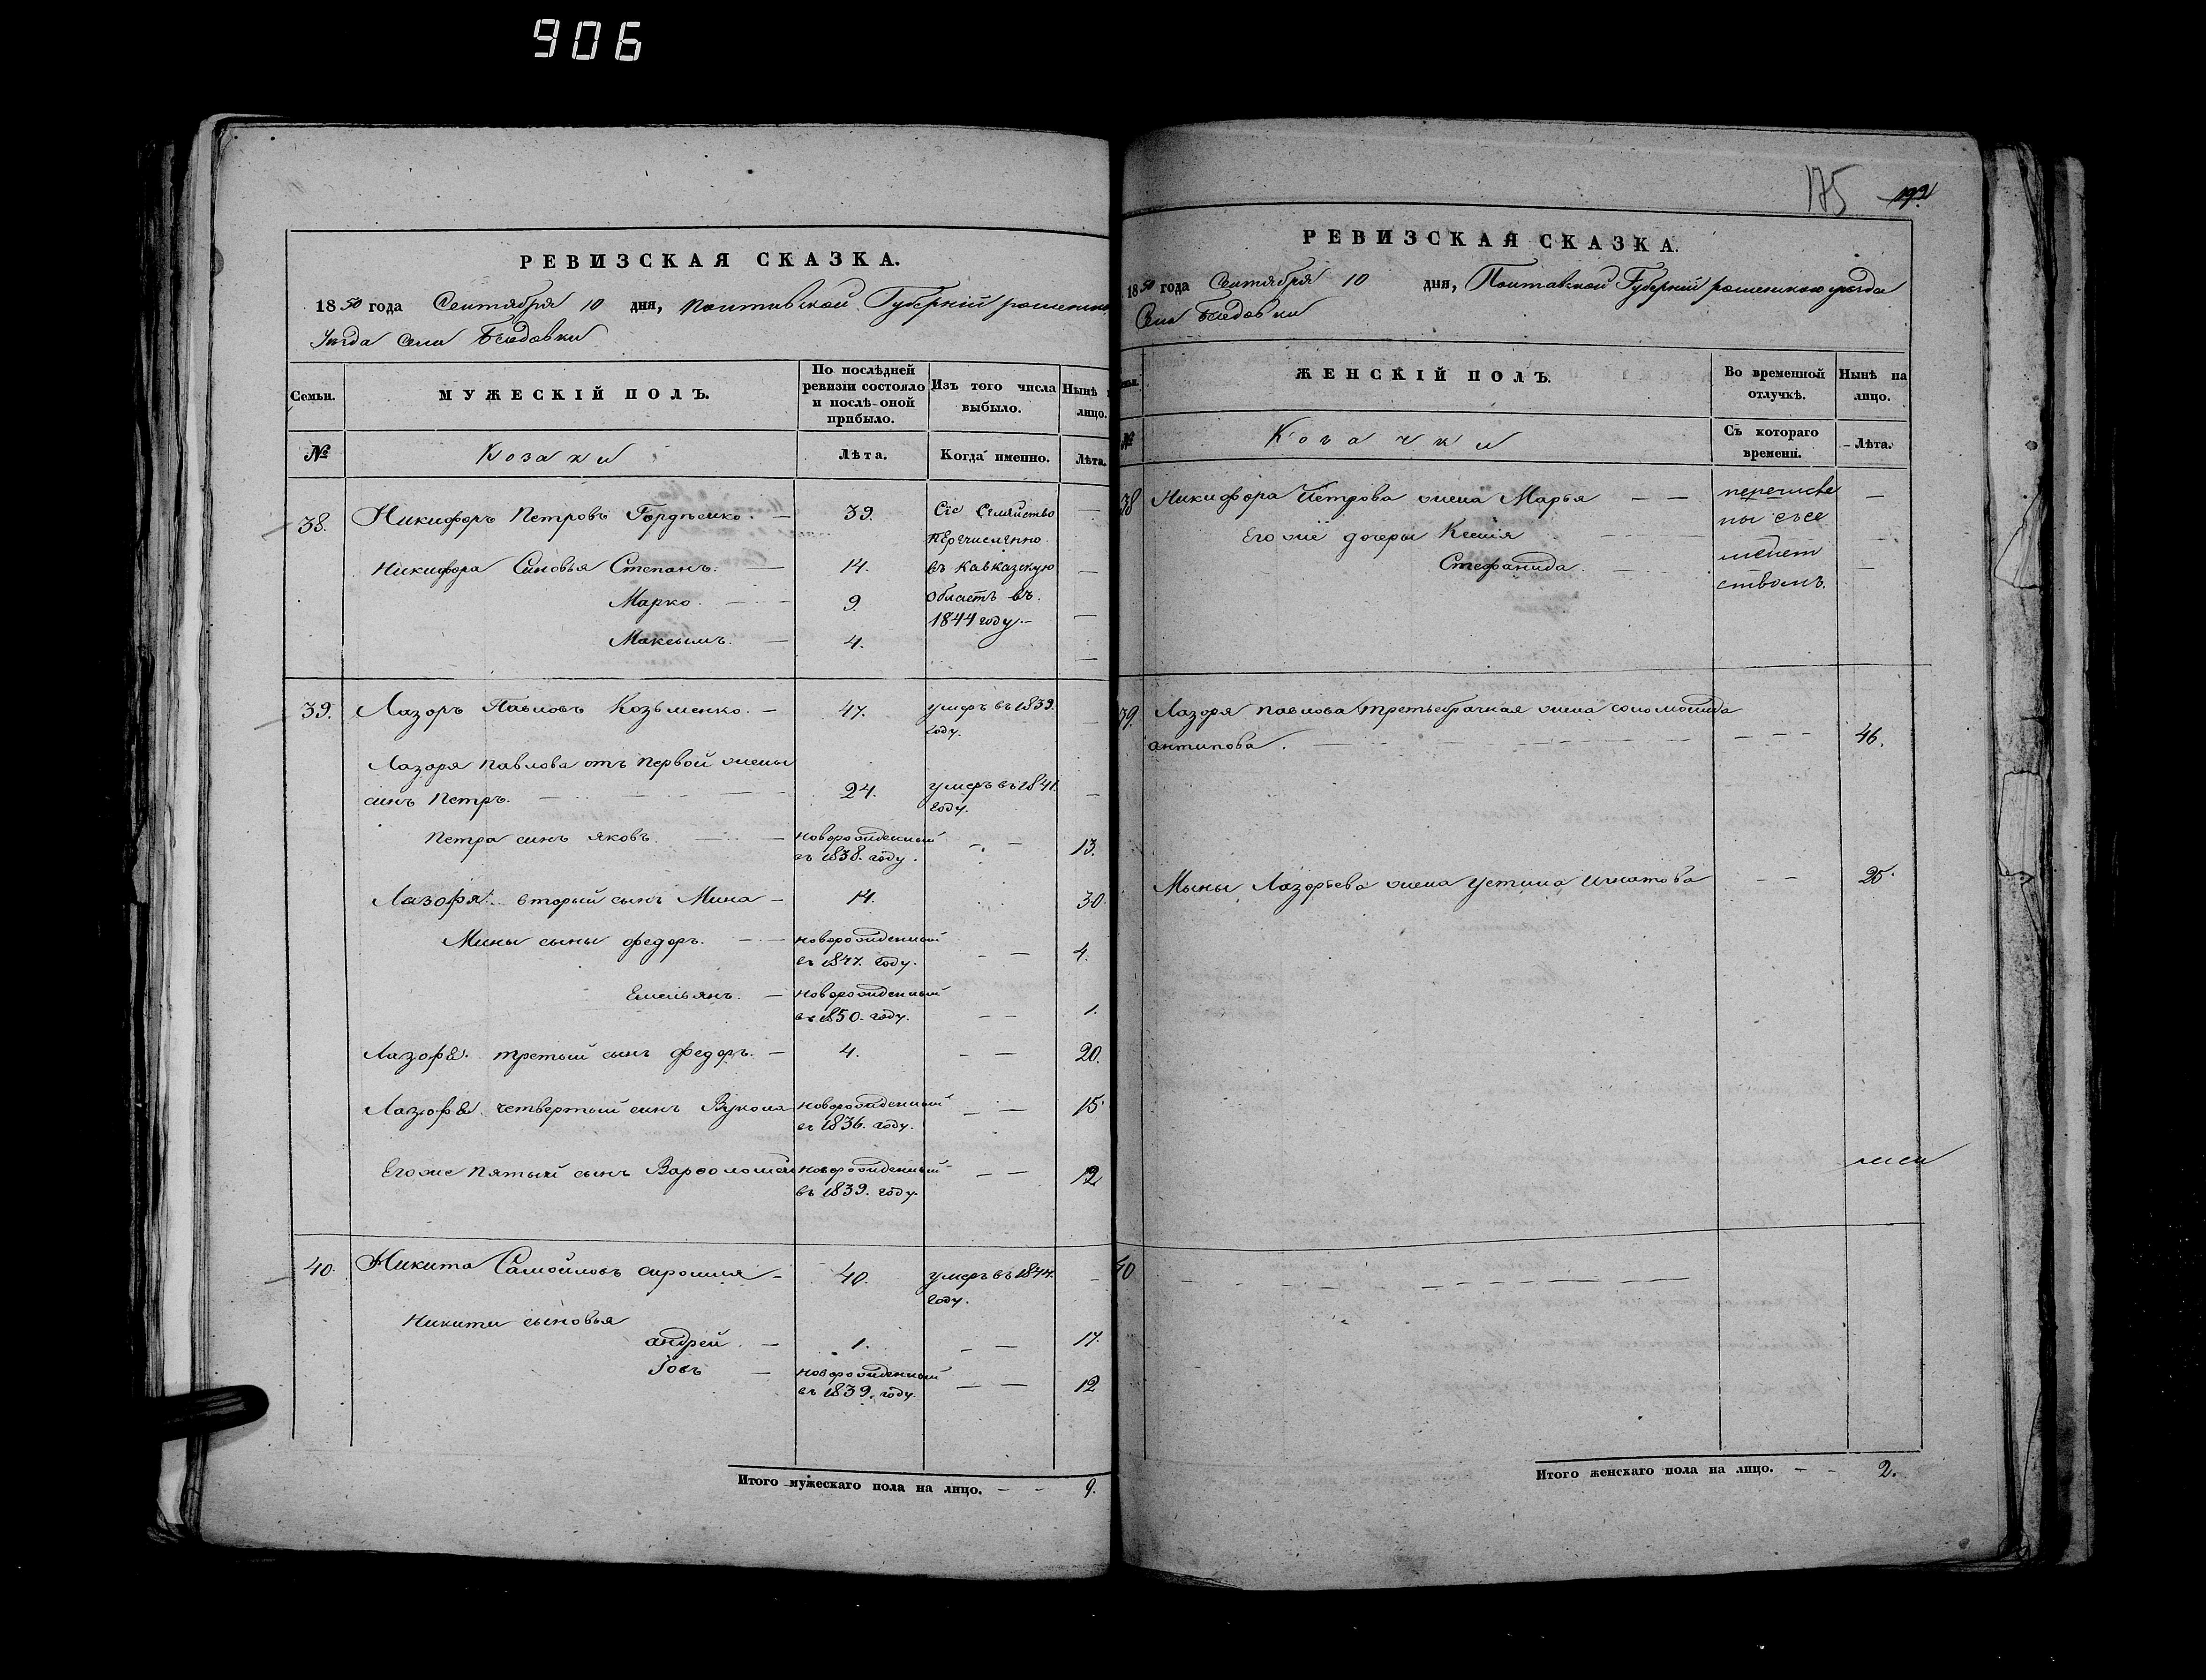 906
РЕВИЗСКАЯ СКАЗКА.
1850 года Сентября 10 дня, Полтавской Губерніи роменско
Уезда Села Беседовки
Семьи.
МУЖЕСКІЙ ПОЛЪ.
По послѣдней ревизіи состояло и послѣ оной прибыло.
Изъ того числа выбыло.
Нынѣ лицо.
№
Козаки
Лѣта.
Когда именно.
Лѣта.
38. Никифоръ Петровъ Гордѣенко. — 39. Сіе Семейство —
перечисленно
Никифора Синовья Степанъ. — 14. въ Кавказскую —
Марко. — 9. Область въ
1844 году. —
Максымъ. — 4. —
39. Лазоръ Павловъ Козьменко. — 47. умеръ въ 1839. —
году.
Лазоря Павлова отъ первой жены
синъ Петръ. — 24. умеръ въ 1841. —
году.
Петра синъ Яковъ. — новорожденный — — 13.
въ 1838. году.
Лазоря вторый сынъ Мина — 14. 30.
Мины сыны федоръ. — новорожденный — — 4.
въ 1847. году.
Емельянъ. — новорожденный
въ 1850. году. — — 1.
Лазоря третый сынъ федоръ. — 4. — — 20.
Лазоря четвертый синъ Вукола новорожденный — — 15.
въ 1836. году.
Егоже пятый сынъ Варфоломей новорожденный — — 12
въ 1839. году.
40. Никита Самойловъ — 40. умеръ въ 1844. —
году.
Никити сыновья
андрей. — 1. — — 17.
Іовъ — новорожденный — — 12
въ 1839. году.
Итого мужескаго пола на лицо. — — 9.
175
РЕВИЗСКАЯ СКАЗКА.
1850 года Сентября 10 дня, Полтавской Губерніи роменского уезда
Села Беседовки
ЖЕНСКІЙ ПОЛЪ.
Во временной отлучкѣ.
Нынѣ на лицо.
№
Козачки
Съ котораго времени.
Лѣта.
38 Никифора Петрова жена Марья — — перечисле —
ны съсе
Его же дочеры Ксенія — мейст —
Стефанида. — ствомъ. —
39. Лазоря павлова третьебрачная жена соломонида
антипова. — — — 46.
Мыны Лазорьева жена Устина игнатова — — 25.
40 — — — — — —
Итого женскаго пола на лицо. — — 2.